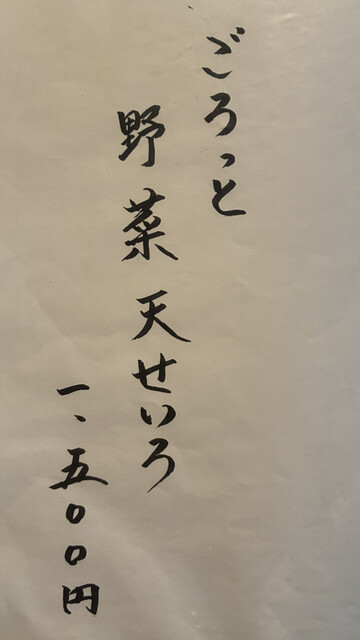 ごろっと
野菜天せいろ
一、五〇〇円